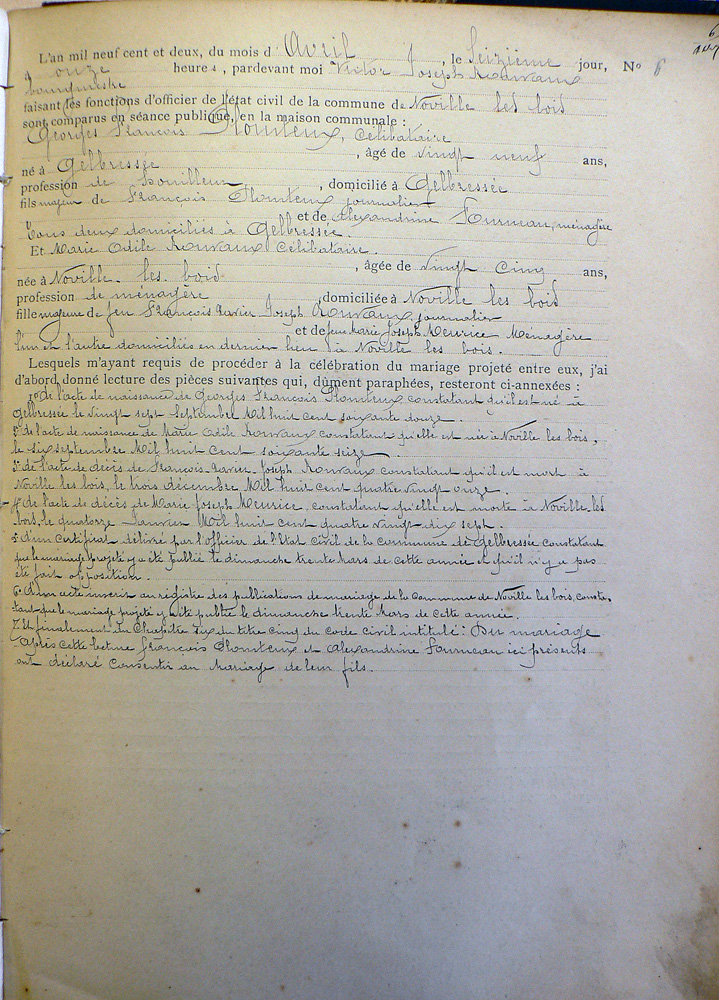 L'an mil neuf cent et deux, du mois d'Avril, le Seizième jour, No 6
à onze heures, pardevant moi Victor Joseph Rouvaux
bourgmestre
faisant les fonctions d'officier de l'état civil de la commune de Noville les bois
sont comparus en séance publique, en la maison communale :
Georges François Plomteux, Célibataire
, âgé de vingt neuf ans,
né à Gelbressée
profession de houilleur, domicilié à Gelbressée
fils majeur de François Plomteux journalier
et de Alexandrine Fourneau, ménagère
tous deux domiciliés à Gelbressée.
Et Marie Odile Rouvaux Célibataire.
, âgée de Vingt Cinq ans,
née à Noville-les-bois
profession de ménagère, domiciliée à Noville les bois
fille majeure de feu François-Xavier Joseph Rouvaux, journalier
et de feue Marie Joseph Meurice Ménagère
l'un et l'autre domiciliés en dernier lieu à Noville les bois.
Lesquels m'ayant requis de procéder à la célébration du mariage projeté entre eux, j'ai
d'abord donné lecture des pièces suivantes qui, dûment paraphées, resteront ci-annexées :
1° de l'acte de naissance de Georges François Plomteux constatant qu'il est né à
Gelbressée le vingt sept Septembre Mil huit cent soixante douze.
2° de l'acte de naissance de Marie Odile Rouvaux constatant qu'elle est née à Noville les bois,
le six septembre Mil huit cent soixante seize.
3° de l'acte de décès de François-Xavier-Joseph Rouvaux constatant qu'il est mort à
Noville les bois, le trois décembre Mil huit cent quatre vingt onze.
4° de l'acte de décès de Marie-Joseph Meurice, constatant qu'elle est morte à Noville-les
bois, le quatorze Janvier Mil huit cent quatre vingt-dix sept.
5° d'un Certificat délivré par l'officier de l'Etat Civil de la commune de Gelbressée constatant
que le mariage projeté y a été publié le dimanche trente Mars de cette année et qu'il n'y a pas
été fait opposition.
6° d'un acte inscrit au régistre des publications de mariage de la Commune de Noville les bois, consta-
tant que le mariage projeté y a été publié le dimanche trente Mars de cette année.
7° Et finalement du Chapitre Six du titre cinq du code civil intitulé : Du mariage
Après cette lecture François Plomteux et Alexandrine Fourneau ici présents
ont déclaré consentir au Mariage de leur fils.